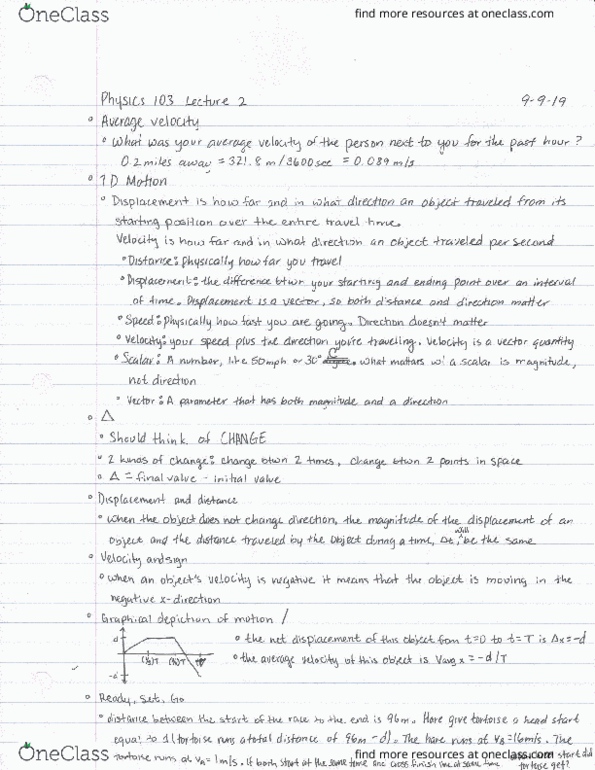 OneClass
find more resources at oneclass.com
Physics 103 Lecture 2
9-9-19
Average velocity
What was your average velocity of the person next to you for the past hour?
0.2 miles away = 321.8 m/3600 sec = 0.089 m/s
1D Motion
Displacement is how far and in what direction an object traveled from its
starting position over the entire travel time.
Velocity is how far and in what direction an object traveled per second
Distance: Physically how far you travel
Displacement: the difference btwn your starting and ending point over an interval
of time. Displacement is a vector, so both distance and direction matter
Speed: Physically how fast you are going. Direction doesn't matter
Velocity: your speed plus the direction you're traveling. Velocity is a vector quantity
Scalar: A number, like 50mph or 30° C. What matters w/ a scalar is magnitude,
not direction
Vector: A parameter that has both magnitude and a direction
Δ
Should think of CHANGE
2 kinds of change: change btwn 2 times, change btwn 2 points in space
Δ = final value - initial value
Displacement and distance
when the object does not change direction, the magnitude of the displacement of an
object and the distance traveled by the object during a time, Δt, will be the same
Velocity and sign
when an object's velocity is negative it means that the object is moving in the
negative x-direction
Graphical depiction of motion /
d
(⅓)T
T
-d
the net displacement of this object from t=0 to t=T is Δx=-d
the average velocity of this object is Vavg x = -d/T
Ready, Set, Go
distance between the start of the race to the end is 96m. Hare give tortoise a head start
equal to d (tortoise runs a total distance of 96m-d). The hare runs at
The
tortoise runs at VA=1m/s. If both start at the same time and cross finish line at same time
start did
tortoise get?
OneClass
find more resources at oneclass.com